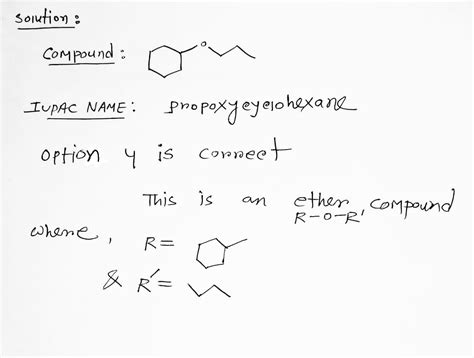 Solution :
Compound : O
IUPAC NAME : propoxycyclohexane
option 4 is correct
This is an ether compound
R-O-R'
where, R =
& R' =